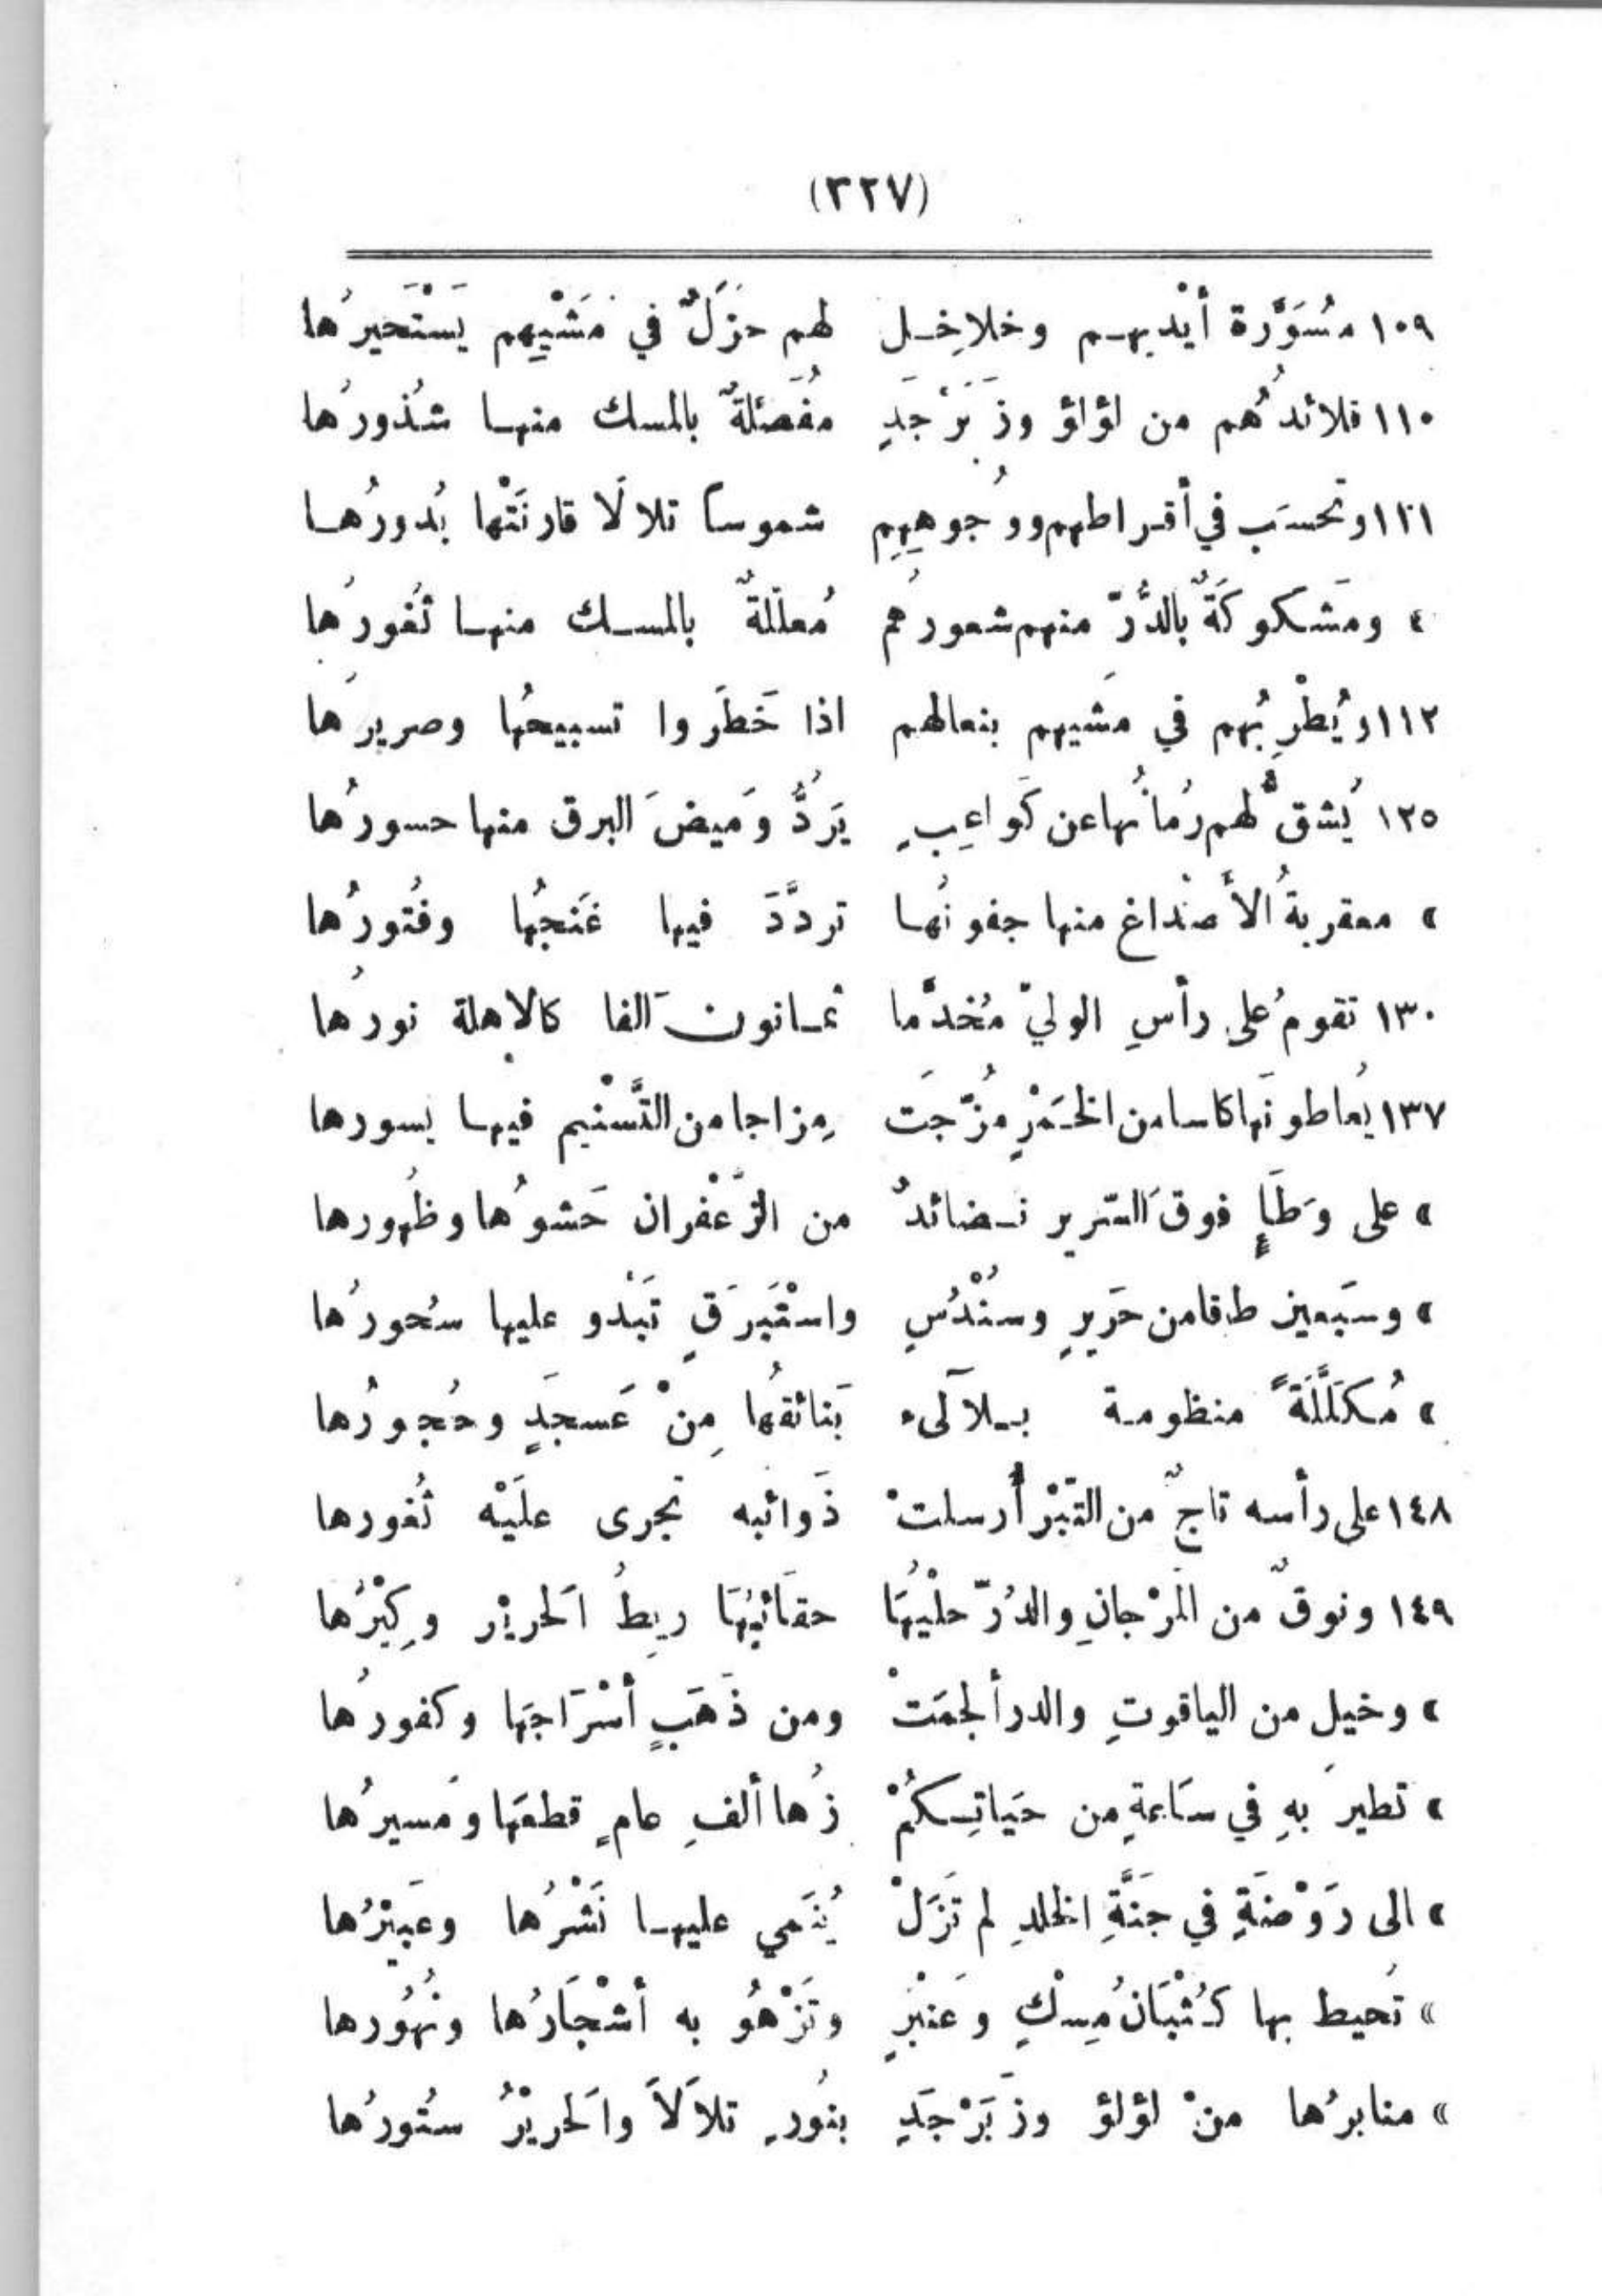 (٣٢٧)
١٠٩ مُسَوَّرة أيْديهم وخلاخِل لهم حزَلٌ في مَشْيِهم يَسْتَحيرُها
١١٠ قلائدُهم من لؤلؤ وزَبَرْجَدٍ مُفَصَّلةٌ بالمسك منها شذورُها
١١١ وتحسَب في أقراطهم ووُجوهِهِم شموساً تلالَا قارنَتْها بُدورُها
» ومَشكوكَةٌ بالدُّرّ منهم شعورُهم مُعلّلةٌ بالمسك منها ثغورُها
١١٢ ويُطْرِبُهم في مَشيهم بنعالهم اذا خَطَروا تسبيحُها وصريرُها
١٢٥ يُشقّ لهم رُمانُها عن كَواعِبٍ يَرُدُّ وَميضَ البرق منها حسورُها
» معقربةُ الأصْداغ منها جفونُها تردَّدَ فيها غَنجُها وفُتورُها
١٣٠ تقومُ على رأسِ الوليّ مُخدَّما ثمانونَ الفا كالاهلة نورُها
١٣٧ يُعاطونَها كاسا من الخَمْرِ مُزّجَت مِزاجا من التَّسْنيم فيها بسورها
» على وَطَإٍ فوقَ السّرير نضائدٌ من الزَّعْفران حَشوُها وظُهورها
» وسَبعين طاقا من حَريرٍ وسُنْدُسٍ واسْتَبَرَقٍ تَبْدو عليها سُحورُها
» مُكَلَّلَةً منظومة بلآلىء بَنائقُها مِنْ عَسجَدٍ وحُجورُها
١٤٨ على رأسه تاجٌ من التّبْر أُرسلتْ ذَوائبه تجرى علَيْه ثُغورها
١٤٩ ونوقٌ من المَرْجانِ والدُرّ حلْيُهَا حقَائبُهَا ريطُ الحَريْر وكِبْرُها
» وخيل من الياقوتِ والدر ألجمَتْ ومن ذَهَبٍ أسْرَاجهَا وكفورُها
» تطير بهِ في سَاعةٍ من حَيَاتِكُمْ زُها ألفِ عامٍ قطعَها ومَسيرُها
» الى رَوْضَةٍ في جَنَّةِ الخلدِ لم تَزَلْ يُنَمي عليها نَشْرُها وعَبَيْرُها
» تُحيط بها كُثْبَانُ مِسْكٍ وعَنْبَرٍ وتَزْهُو به أشْجَارُها ونُهُورها
» منابرُها منْ لؤلؤ وزَبَرْجَدٍ بنُورٍ تلاَلاَ والحَريْرُ ستُورُها